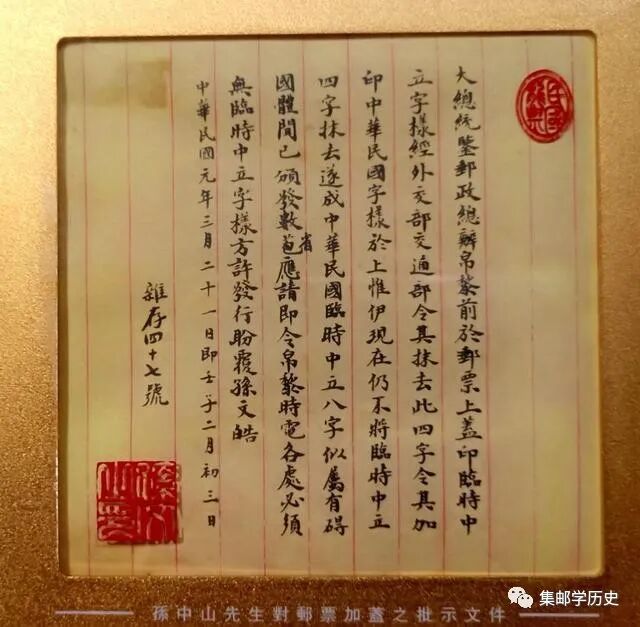 大總統鑒郵政總辦帛黎前於郵票上蓋印臨時中
立字樣經外交部交通部令其抹去此四字令其加
印中華民國字樣於上惟伊現在仍不將臨時中立
四字抹去遂成中華民國臨時中立八字似屬有碍
國體間已頒發數省應請即令帛黎時電各處必須
無臨時中立字樣方許發行盼覆孫文皓
中華民國元年三月二十一日即壬子二月初三日
雜存四十七號
孫中山先生對郵票加蓋之批示文件
集邮学历史